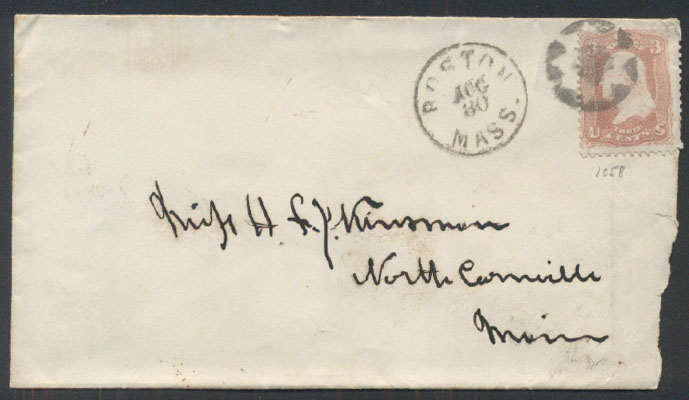 BOSTON
AUG
30
MASS.
3
U THREE CENTS S
1058
Miss H. L. J. Kinsman
North Cornville
Main